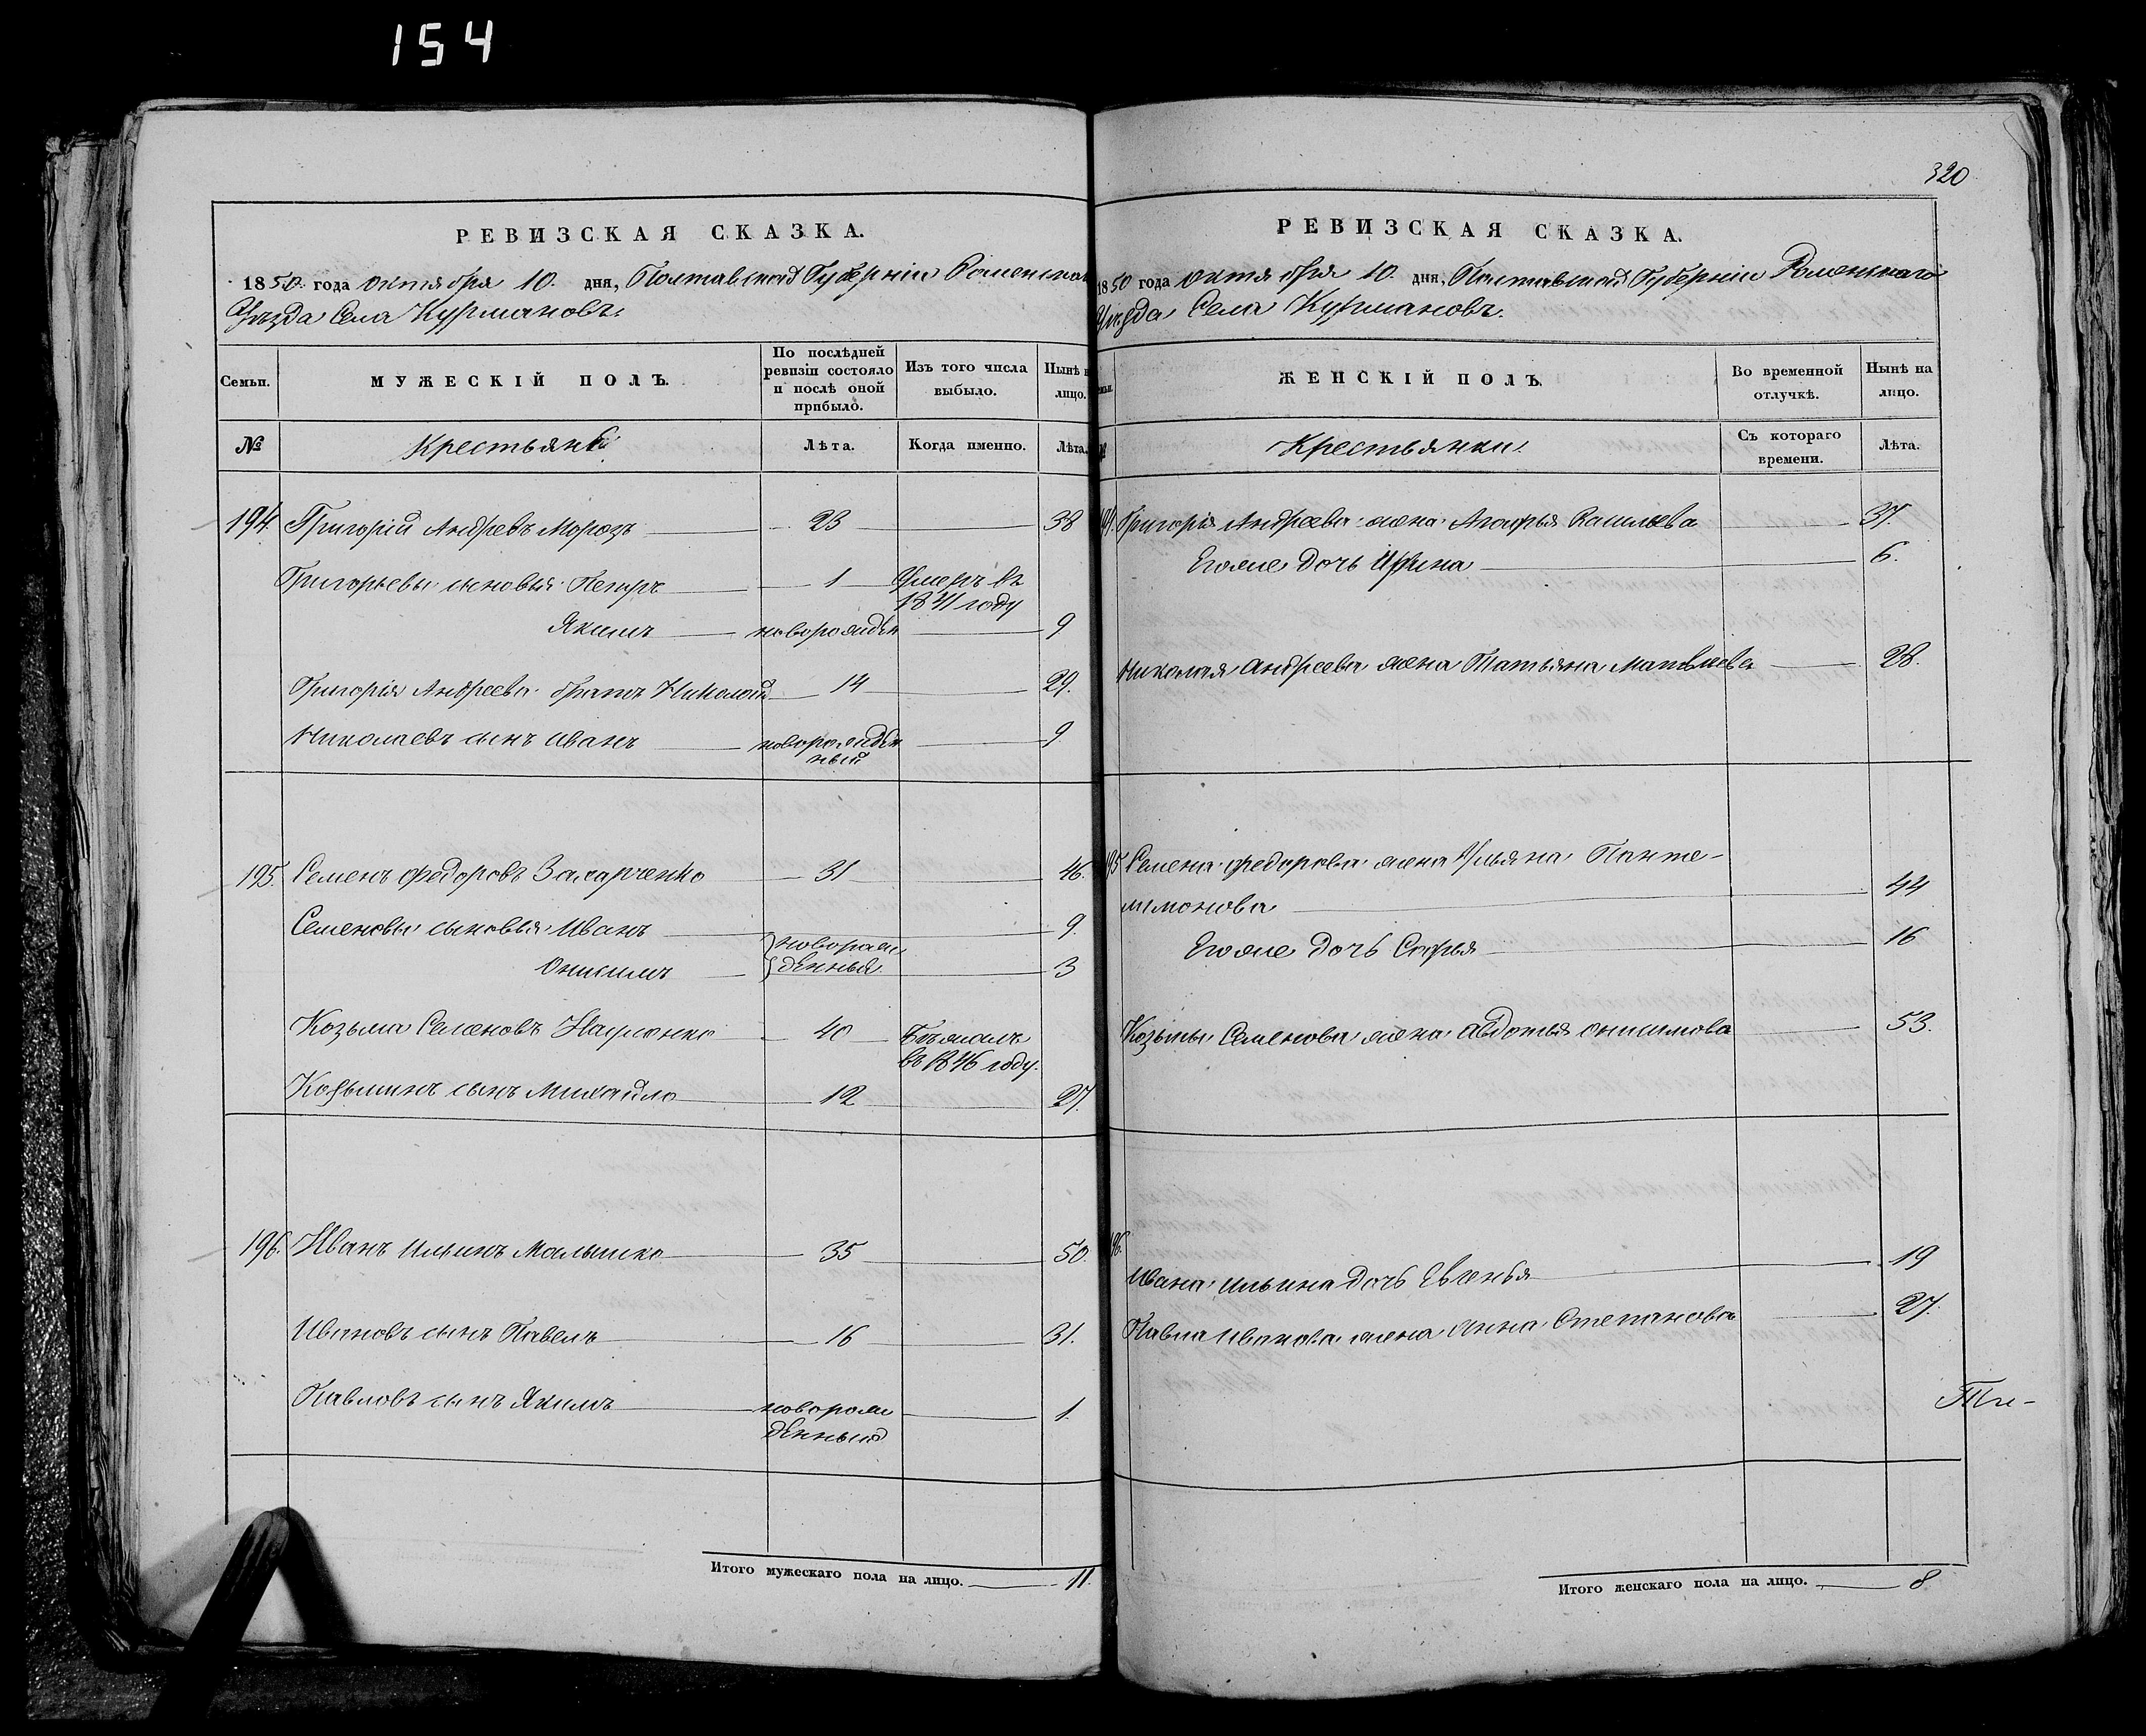 154
320
РЕВИЗСКАЯ СКАЗКА.
1850 года октября 10. дня, Полтавской Губерніи Роменскаго
Уѣзда Села Курмановъ.
Семьи.
МУЖЕСКІЙ ПОЛЪ.
По послѣдней ревизіи состояло и послѣ оной прибыло.
Изъ того числа выбыло.
Нынѣ на лицо.
№
Крестьянѣ
Лѣта.
Когда именно.
Лѣта.
194. Григорій Андреевъ Морозъ 23 38
Григорьевы сыновья Петръ 1 Умеръ въ
1841 году
Якимъ новорожден 9
Григорія Андреева братъ Николай 14 29.
Николаевъ сынъ Иванъ новорожден 9
ный
195. Семенъ Федоровъ Захарченко 31 46.
Семеновы сыновья Иванъ 9.
новорож
Онисимъ денныя 3
Козьма Семеновъ 40 Бѣжалъ
въ 1846 году.
Козьминъ сынъ Михайло 12 27.
196. Иванъ Ильинъ Малышко 35 50.
Ивановъ сынъ Павелъ 16 31.
Павловъ сынъ Якимъ новорож 1.
денный
Итого мужескаго пола на лицо. 11.
РЕВИЗСКАЯ СКАЗКА.
1850 года октября 10. дня, Полтавской Губерніи Роменскаго
Уѣзда Села Курмановъ.
ЖЕНСКІЙ ПОЛЪ.
Во временной отлучкѣ.
Нынѣ на лицо.
Крестьянки.
Съ котораго времени.
Лѣта.
194. Григорія Андреева жена Агафья Васильева 37.
Егоже дочь Ирина 6.
Николая Андреева жена Татьяна Матвѣева 28.
195 Семена Федорова жена Ульяна Панте-
лимонова 44
Егоже дочь Софья 16
Козьмы Семенова жена Авдотья Онисимова 53.
196.
Ивана Ильина дочь Евгенья 19
Павла Иванова жена Анна Степанова 27.
Итого женскаго пола на лицо. 8